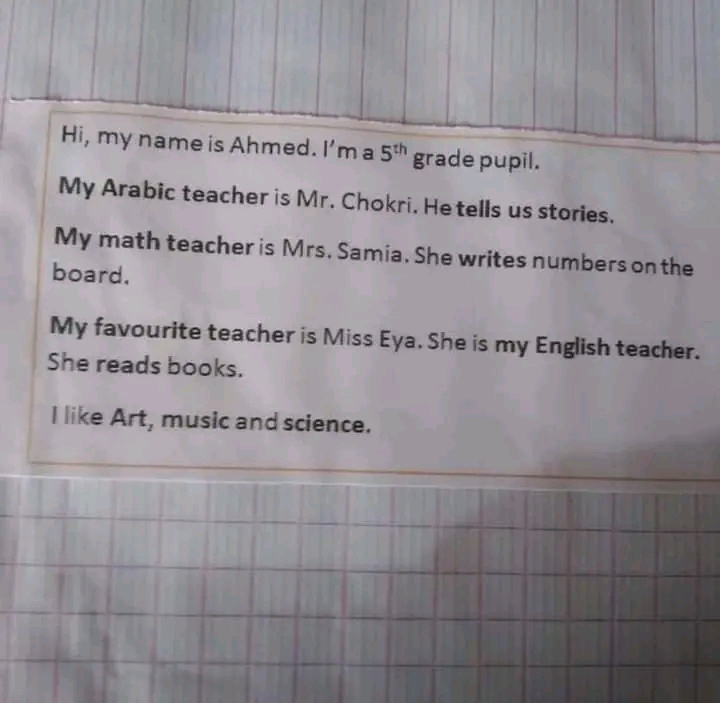 Hi, my name is Ahmed. I'm a 5th grade pupil.
My Arabic teacher is Mr. Chokri. He tells us stories.
My math teacher is Mrs. Samia. She writes numbers on the
board.
My favourite teacher is Miss Eya. She is my English teacher.
She reads books.
I like Art, music and science.